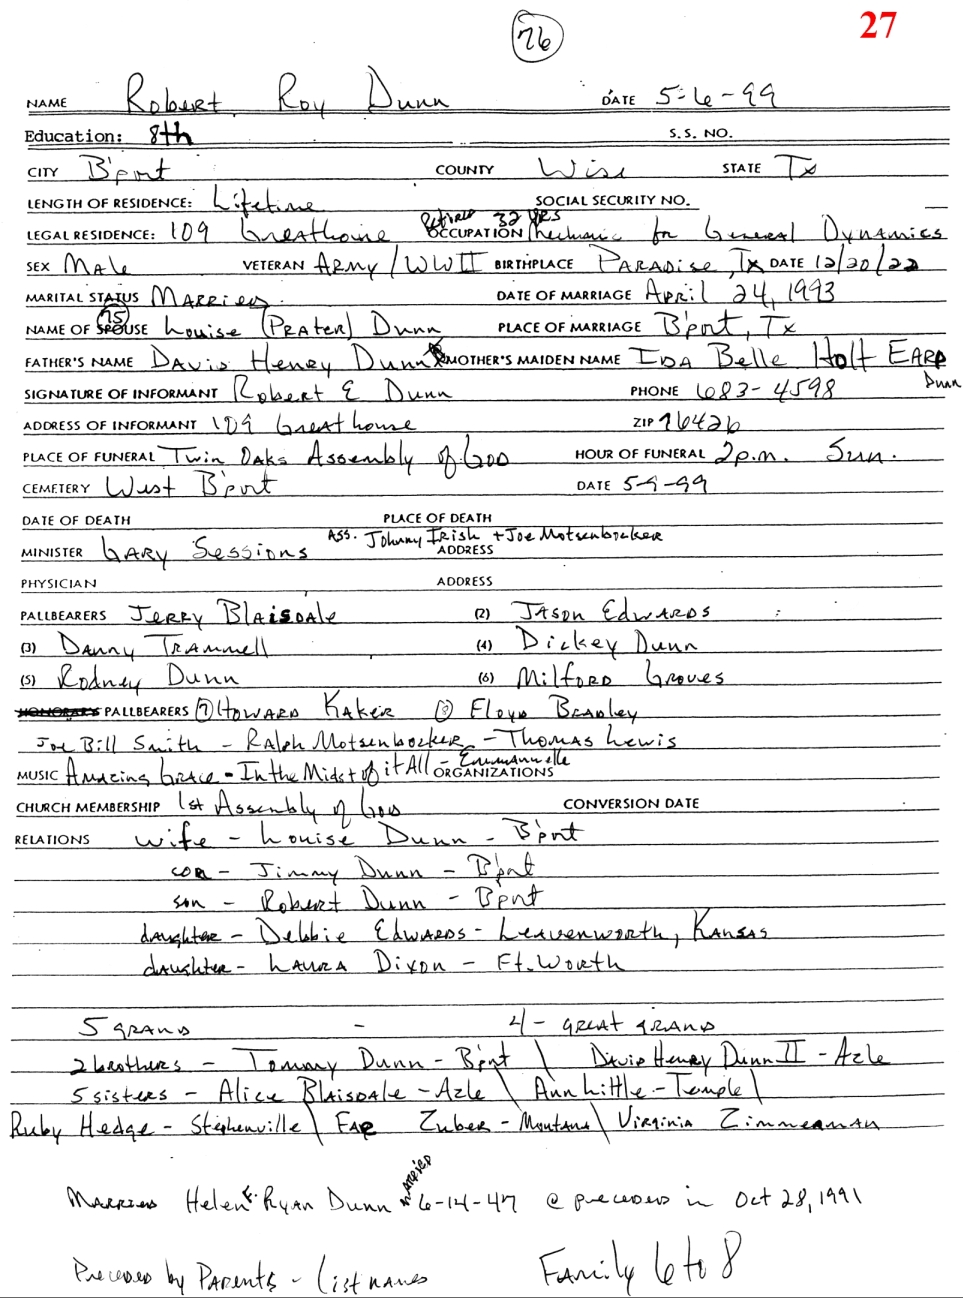 27
76
NAME Robert Roy Dunn DATE 5-6-99
Education: 8th S.S. NO.
CITY B'port COUNTY Wise STATE Tx
LENGTH OF RESIDENCE: Lifetime SOCIAL SECURITY NO.
Retired 32 YRS
LEGAL RESIDENCE: 109 Greathouse OCCUPATION Mechanic for General Dynamics
SEX Male VETERAN Army/WWII BIRTHPLACE PARADISE, Tx DATE 12/20/22
MARITAL STATUS MARRIED DATE OF MARRIAGE April 24, 1993
75
NAME OF SPOUSE Louise (PRATER) Dunn PLACE OF MARRIAGE B'port, Tx
FATHER'S NAME DAVID Henry Dunn MOTHER'S MAIDEN NAME IDA Belle Holt EARP
Dunn
SIGNATURE OF INFORMANT Robert E Dunn PHONE 683-4598
ADDRESS OF INFORMANT 109 Greathouse ZIP 76426
PLACE OF FUNERAL Twin Oaks Assembly of GOD HOUR OF FUNERAL 2p.m. Sun.
CEMETERY West B'port DATE 5-9-99
DATE OF DEATH PLACE OF DEATH
Ass. Johnny Irish + Joe Motsenbocker
MINISTER GARY Sessions ADDRESS
PHYSICIAN ADDRESS
PALLBEARERS JERRY BLAISDALE (2) JASON EDWARDS
(3) DANNY TRAMMELL (4) Dickey Dunn
(5) Rodney Dunn (6) MILFORD GROVES
HONORARY PALLBEARERS (7) HOWARD KAKER (8) FLOYD BRADLEY
Joe Bill Smith - RALPH Motsenbocker - Thomas Lewis
MUSIC Amazing Grace - In the Midst of it All - Emmannuelle ORGANIZATIONS
CHURCH MEMBERSHIP 1st Assembly of GOD CONVERSION DATE
RELATIONS wife - Louise Dunn - B'port
son - Jimmy Dunn - B'port
son - Robert Dunn - B'port
daughter - Debbie EDWARDS - Leavenworth, KANSAS
daughter - LAURA DIXON - Ft. WORTH
5 GRAND - 4 - GREAT GRAND
2 brothers - Tommy Dunn - B'port \ DAVID Henry Dunn II - Azle
5 sisters - Alice BLAISDALE - Azle \ Ann Little - Temple \
Ruby Hedge - Stephenville \ FAE Zuber - Montana \ VIRGINIA ZIMMERMAN
MARRIED
MARRIED Helen E. Ryan Dunn 6-14-47 @ preceded in Oct 28, 1991
Preceded by PARENTS - list names Family 6 to 8